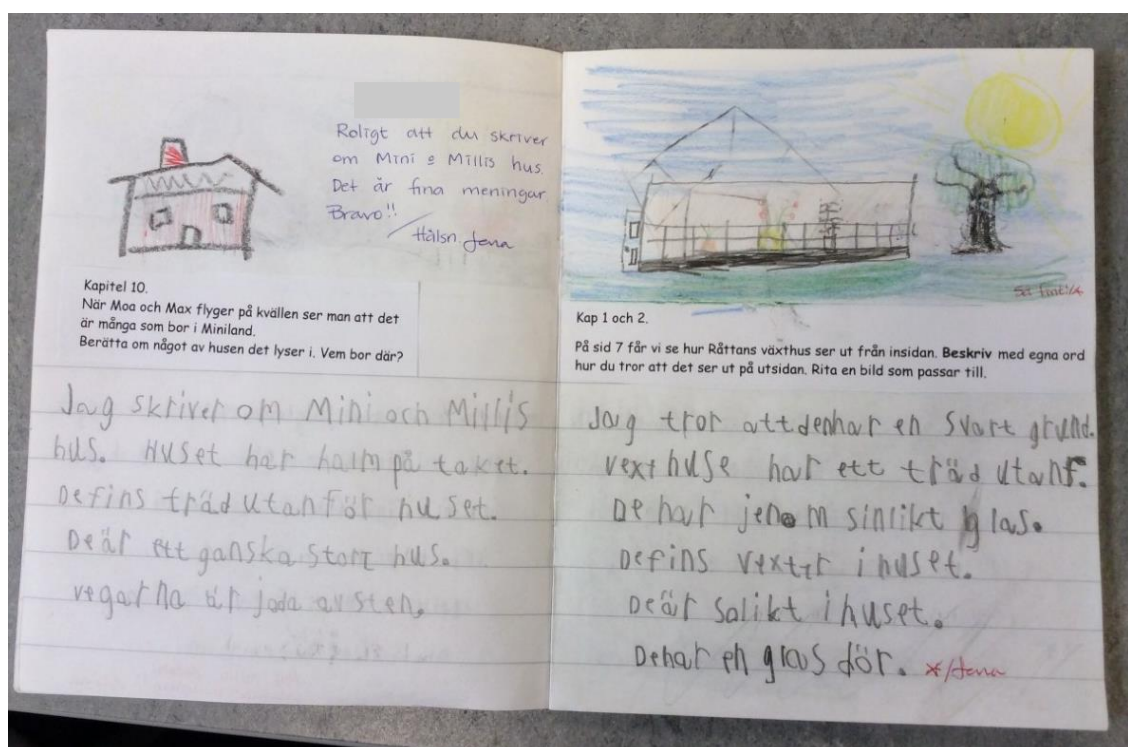 Roligt att du skriver
om Mini & Millis hus.
Det är fina meningar.
Bravo!!
/Hälsn. Jena
Kapitel 10.
När Moa och Max flyger på kvällen ser man att det
är många som bor i Miniland.
Berätta om något av husen det lyser i. Vem bor där?
Jag skriver om Mini och Millis
hus. Huset har halm på taket.
Defins träd utanför huset.
Deär ett ganska stort hus.
vegarna är joda av sten.
Kap 1 och 2.
På sid 7 får vi se hur Råttans växthus ser ut från insidan. Beskriv med egna ord
hur du tror att det ser ut på utsidan. Rita en bild som passar till.
Jag tror attdenhar en svart grund.
vexthuse har ett träd utanf.
De har jenom sinlikt glas.
Defins vexter i huset.
Deär Solikt i huset.
Dehar en glas dör. */Jena